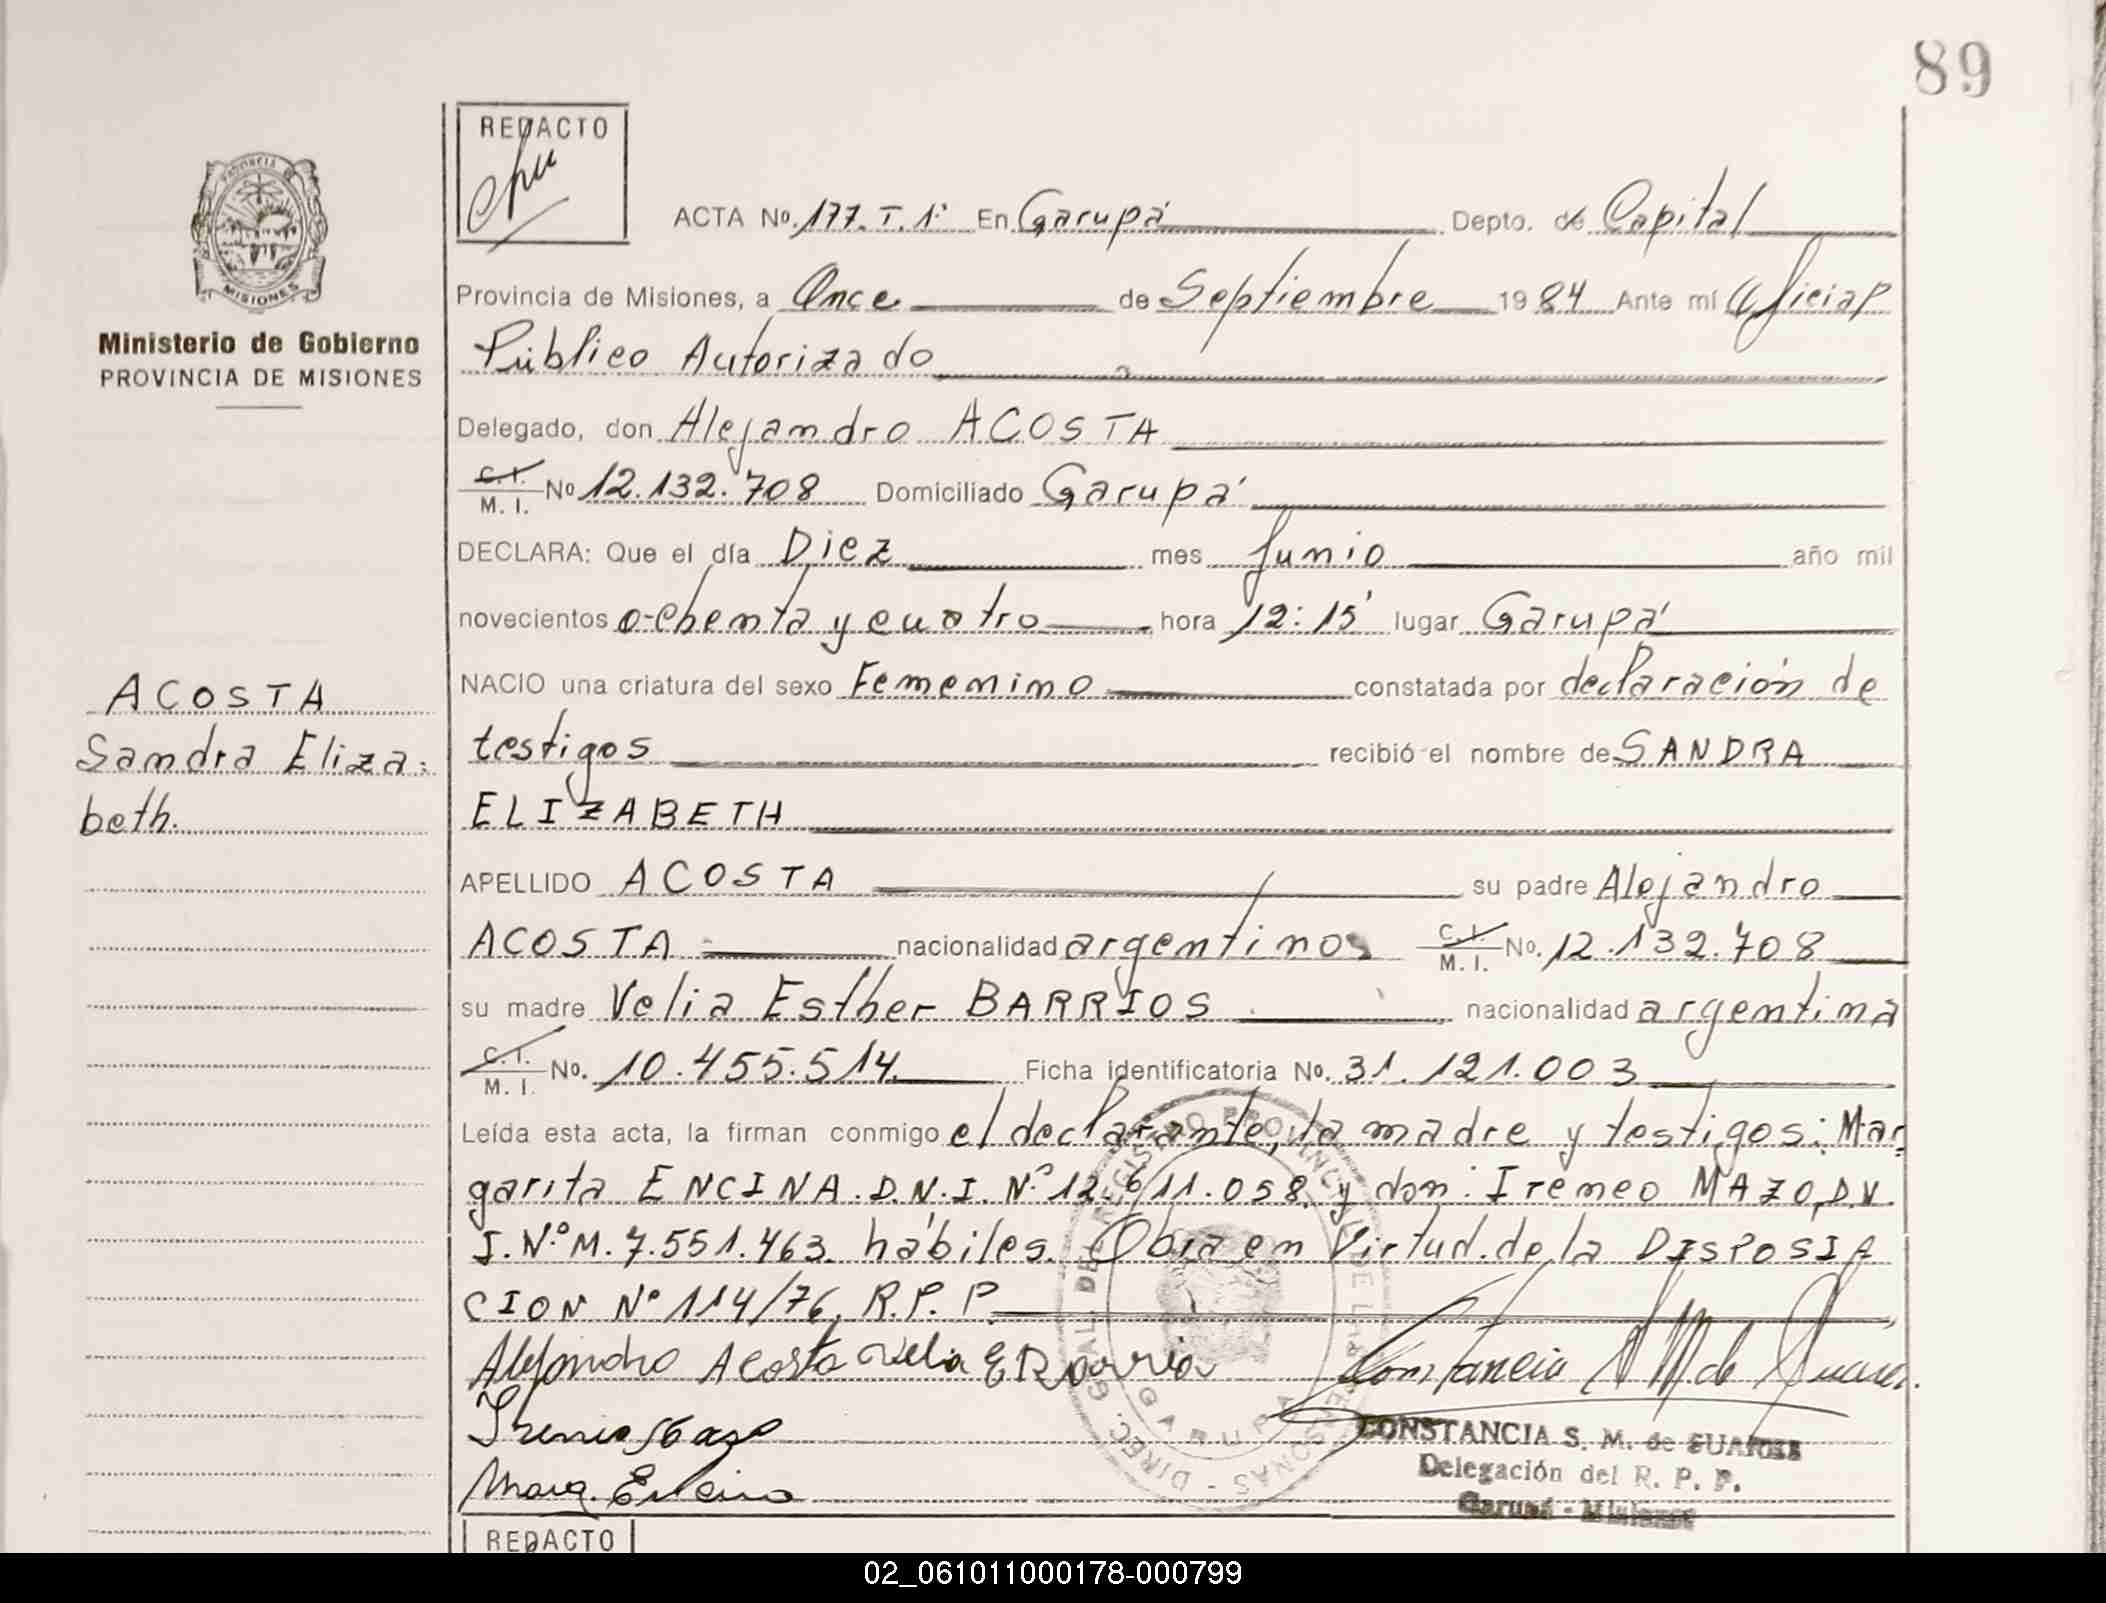 89
REDACTO
ACTA No. 177. T. 1° En Garupá Depto. de Capital
PROVINCIA
MISIONES
Provincia de Misiones, a Once de Septiembre 1984 Ante mí Oficial
Ministerio de Gobierno
PROVINCIA DE MISIONES
Público Autorizado
Delegado, don Alejandro ACOSTA
C.I. M. I. No 12.132.708 Domiciliado Garupá
DECLARA: Que el día Diez mes Junio año mil
novecientos ochenta y cuatro hora 12:15' lugar Garupá
NACIO una criatura del sexo Femenino constatada por declaración de
ACOSTA
Sandra Eliza-
beth.
testigos recibió el nombre de SANDRA
ELIZABETH
APELLIDO ACOSTA su padre Alejandro
ACOSTA nacionalidad argentinos C.I. M. I. No. 12.132.708
su madre Velia Esther BARRIOS nacionalidad argentina
C.I. M. I. No. 10.455.514. Ficha identificatoria No. 31.121.003
Leída esta acta, la firman conmigo el declarante, la madre y testigos: Mar-
garita ENCINA. D.N.I. N° 12.611.058 y don: Ireneo MAZO, D.N.
I. N.° M. 7.551.463. hábiles. Obra en Virtud de la DISPOSIA
CION N° 114/76, R.P.P.
Alejandro Acosta Velia E Barrios
Ireneo Mazo
Marg. Encina
DIREC. GRAL. DEL REGISTRO PROVINCIAL DE LAS PERSONAS -
GARUPA
CONSTANCIA S. M. de SUAREZ
Delegación del R. P. P.
Garupá - Misiones
REDACTO
02_061011000178-000799